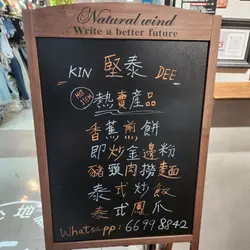 Natural wind
Write a better future
KIN 堅泰 DEE
HOT ITEM 熱賣產品
香蕉煎餅
即炒金邊粉
豬頸肉撈麵
泰式炒飯
泰式鳳爪
Whatsapp: 66998842